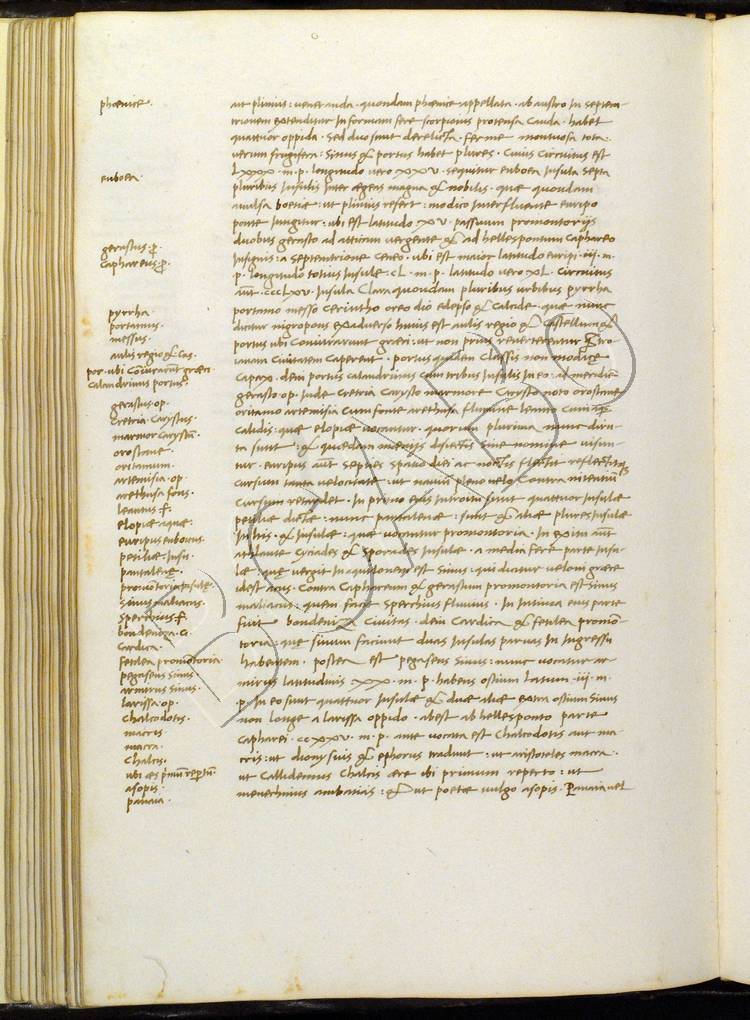 phœnice.
euboea.
gerastus. p.
Caphareus. p.
pyrrha.
portamus.
messus.
aulis regio & cas.
por. ubi Coniurarut græci.
Calandrinus portus.
gerastus. op.
cretria. Carystus.
marmor Carystū.
orostane.
oritamum.
artemisia. op.
arethusa fons.
leantus. f.
elopiæ aquæ.
euripus euboicus.
petiliæ. Insu.
pantaleuę.
promōtoria insulę.
Sinus maliacus.
sperchius. f.
bondeniza. ci.
Cardica.
fetilea promōtoria.
pegaseus sinus.
armirus sinus.
larissa. op.
Chalcodotis.
macris.
macra.
Chalcis.
ubi æs primū repertū.
asopis.
panaia.
aut plinius: veneranda. quondam phœnice appellata. ab austro In septem-
trionem extenditur In formam fere scorpionis protensa Cauda. habet
quattuor oppida. Sed duo sunt derelicta. ferme montuosa tota.
uerum frugifera. Sinus & portus habet plures. Cuius Circuitus est
LXXX. m. p. longitudo vero XXV. sequitur euboea Insula septa
pluribus Insulis Inter ægeas magna & nobilis. quæ quondam
auulsa boetiæ: ut plinius refert: modico Interfluente euripo
ponte Iungitur. ubi est latitudo XV. passuum promontorijs
duobus geresto ad atticam vergente & ad hellespontum caphareo
Insignis: a septemtrione ceneo. ubi est maior latitudo euripi. iiij. m.
p. longitudo totius Insulæ. CL. m. p. latitudo vero XL. Circuitus
aūt. CCCLXV. Insula Clara quondam pluribus urbibus pyrrha
portamo messo cerintho oreo dio edepso & Calade. quæ nunc
dicitur nigropons ex aduerso huius est aulis regio & Castellum &
portus ubi Coniurarunt græci: ut non prius reuerterentur & tro-
ianam Ciuitatem Caperent. portus quidem Classis non modicę
Capax. dein portus calandrinus cum tribus Insulis In eo. at meridiē
gerasto op. Inde cretria Carysto marmore Carystio noto orostane
oritamo artemisia cum fonte arethusa flumine leanto cumqʒ
calidis: quæ elopiæ vocantur. quorum plurima nunc diru-
ta sunt: & quædam mœnijs disiectis sine nomine visun-
tur. euripus aūt septies spatio diei ac noctis flectit reflectitqʒ
cursum tanta velocitate: ut nauiū pleno velo Contra nitentiū
cursum retardet. In primo eius Introitu sunt quattuor Insulæ
petiliæ dictæ: nunc pantaleuæ: sunt & aliæ plures Insulæ
In his. & Insulæ: quæ vocantur promontoria. In exitu aūt
athlante cyclades & sporades Insulæ. a media fere parte Insu-
læ: quę vergit In aquilonem est Sinus: qui dicitur veloni græce
idest acus. Contra Caphareum & gerastum promontoria est sinus
maliacus: quem facit sperchius fluuius. In Intima eius parte
fuit bondeniza Ciuitas. dein Cardica & fetilea promō-
toria: quę sinum faciunt duas Insulas paruas In Ingressu
habentem. postea est pegaseus Sinus: nunc vocatur ar-
mirus latitudinis XX. m. p. habens ostium latum. iii. m.
p. In eo sunt quattuor Insulæ & duæ aliæ extra ostium Sinus
non longe a larissa oppido. abest ab hellesponto parte
Capharei. CCXXV. m. p. ante vocata est Chalcodotis aut ma-
cris: ut dionysius & ephorus tradunt: ut aristoteles macra.
ut Callidemus Chalcis ære ibi primum reperto: ut
menechmus ambanias: & ut poetæ vulgo asopis. Panaia vel